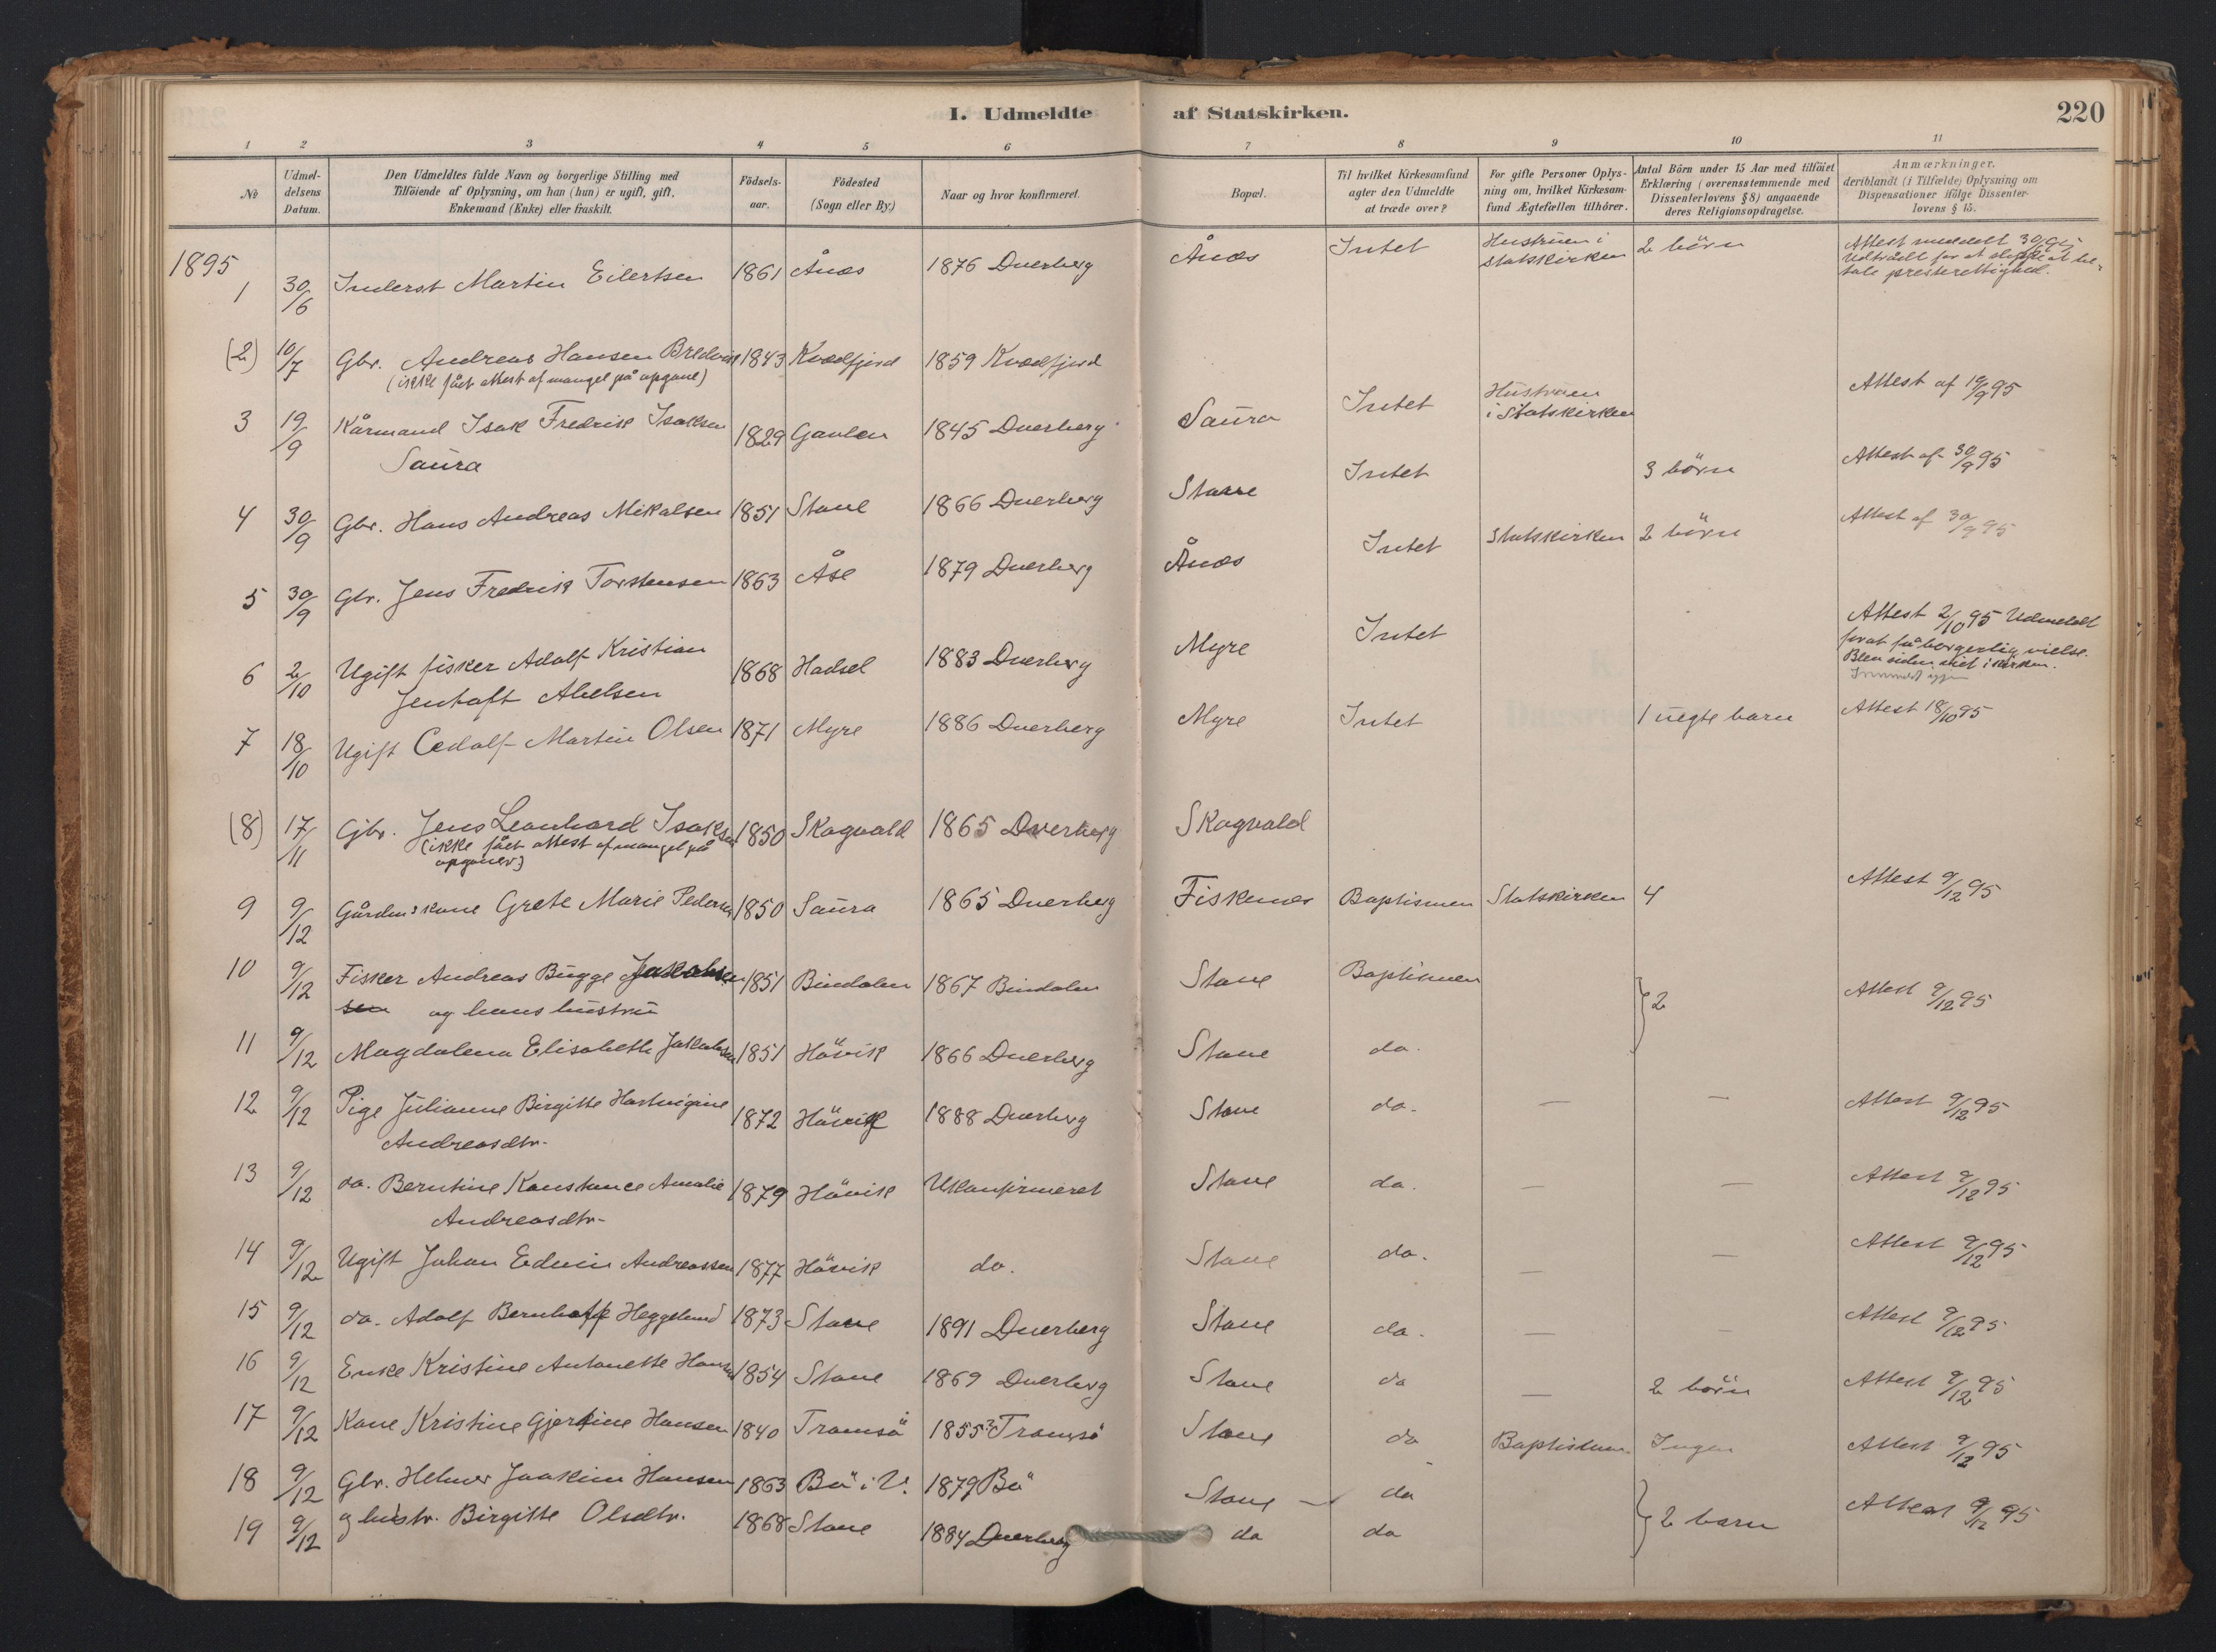 I. Udmeldte af Statskirken. 220
1 2 3 4 5 6 7 8 9 10 11
№ Udmeldelsens Datum. Den Udmeldtes fulde Navn og borgerlige Stilling med Tilföiende af Oplysning, om han (hun) er ugift, gift, Enkemand (Enke) eller fraskilt. Födselsaar. Födested (Sogn eller By.) Naar og hvor konfirmeret. Bopæl. Til hvilket Kirkesamfund agter den Udmeldte at træde over? For gifte Personer Oplysning om, hvilket Kirkesamfund Ægtefællen tilhörer. Antal Börn under 15 Aar med tilföiet Erklæring (overensstemmende med Dissenterlovens §8) angaaende deres Religionsopdragelse. Anmærkninger, deriblandt (i Tilfælde) Oplysning om Dispensationer ifölge Dissenterlovens § 15.
1895
1 30/6 Inderst Martin Eilertsen 1861 Ånæs 1876 Dverberg Ånæs Intet Hustruen i statskirken 2 börn Attest meddelt 30/6 95 Udtrådt for at slippe at betale presterettighed.
(2) 10/7 Gbr. Andreas Hansen Bredvik 1843 Kvædfjord 1859 Kvædfjord
(ikke fået attest af mangel på opgave)
3 19/9 Kårmand Isak Fredrik Isaksen 1829 Gavlen 1845 Dverberg Saura Intet Hustruen i Statskirken Attest af 19/9 95
Saura
4 30/9 Gbr. Hans Andreas Mikalsen 1851 Stave 1866 Dverberg Stave Intet 3 börn Attest af 30/9 95
5 30/9 Gbr. Jens Fredrik Torstensen 1863 Åse 1879 Dverberg Ånæs Intet Statskirken 2 börn Attest af 30/9 95
6 2/10 Ugift fisker Adolf Kristian 1868 Hadsel 1883 Dverberg Myre Intet Attest 2/10 95 Udmeldt
Jentoft Abelsen for at få borgerlig vielse.
Blev siden viet i kirken.
Innmeldt igjen
7 18/10 Ugift Cedolf Martin Olsen 1871 Myre 1886 Dverberg Myre Intet 1 uegte barn Attest 18/10 95
(8) 17/11 Gjbr. Jens Leonhard Isaksen 1850 Skogvold 1865 Dverberg Skogvold
(ikke fået attest af mangel på
opgaver)
9 9/12 Gårdmskone Grete Marie Pedersen 1850 Saura 1865 Dverberg Fiskenes Baptismen Statskirken 4 Attest 9/12 95
10 9/12 Fisker Andreas Bugge Jakobsen 1851 Bindalen 1867 Bindalen Stave Baptismen 2 Attest 9/12 95
sen og hans hustru
11 9/12 Magdalena Elisabeth Jakobsen 1851 Hövik 1866 Dverberg Stave do.
12 9/12 Pige Julianne Birgitte Hartvigine 1872 Hövik 1888 Dverberg Stave do. — — Attest 9/12 95
Andreasdtr.
13 9/12 do. Berntine Konstance Amalie 1879 Hövik Ukonfirmeret Stave do. — — Attest 9/12 95
Andreasdtr.
14 9/12 Ugift Johan Edvin Andreassen 1877 Hövik do. Stave do. — — Attest 9/12 95
15 9/12 do. Adolf Bernhoff Heggelund 1873 Stave 1891 Dverberg Stave do. — — Attest 9/12 95
16 9/12 Enke Kristine Antonette Hansen 1854 Stave 1869 Dverberg Stave do — 2 börn Attest 9/12 95
17 9/12 Kone Kristine Gjertine Hansen 1840 Tromsö 1855? Tromsö Stave do Baptismen Ingen Attest 9/12 95
18 9/12 Gbr. Helmer Joakim Hansen 1863 Bö i V. 1879 Bö Stave — do 2 barn Attest 9/12 95
19 9/12 og hustr. Birgitte Olsdtr. 1868 Stave 1884 Dverberg do do